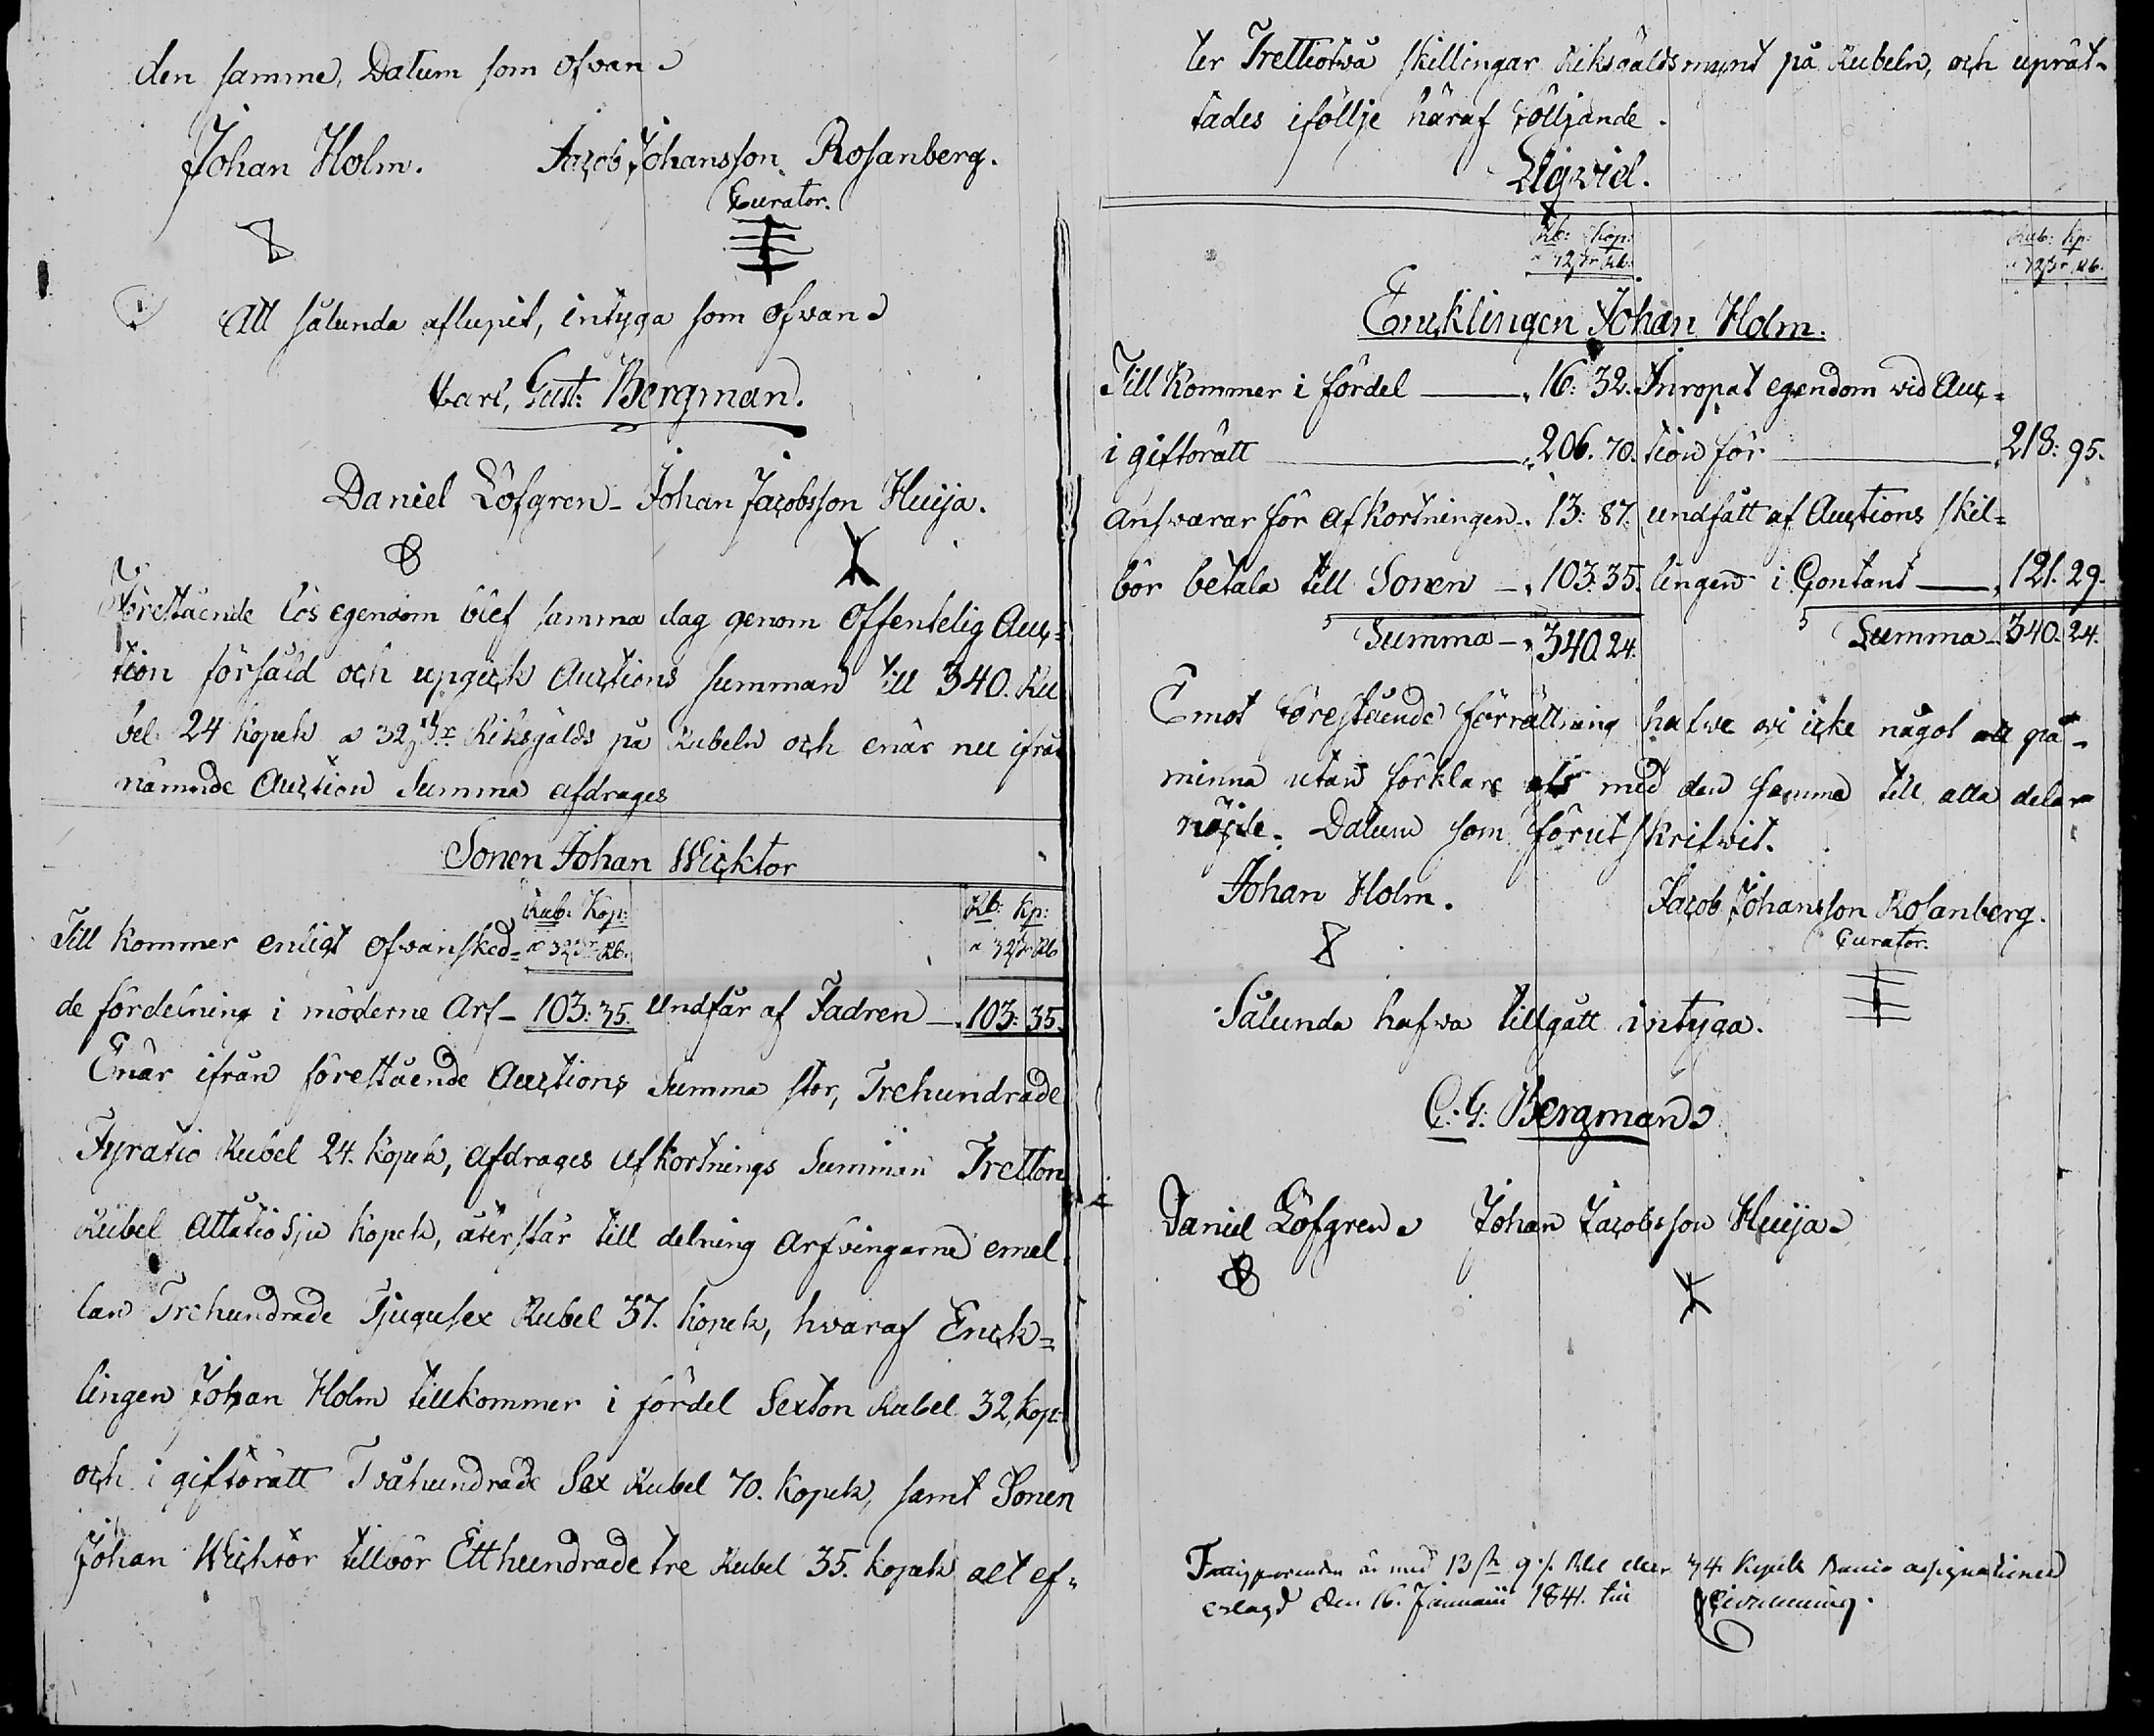 den samme, Datum som ofvan
Johan Holm. Jacob Johansson Rosanberg.
Curator.
Att sålunda aflupit, intyga som ofvan
Carl, Gust: Bergman.
Daniel Löfgren - Johan Jacobsson Huija.
Förestående lös egendom blef samma dag genom Offentelig Auc=
tion försåld och upgick Auctions summan till 340. Ru
bel 24 Kopek a 32 sk:r Riksgälds på Rubeln och enär nu ifrån
nämnde Auction Summa afdrages
Sonen Johan Wicktor
Rub: Kop: Rb: Kp:
Till kommer enligt ofvansked= a 32 sk:r Rb. a 32 sk:r Rb
de fördelning i möderne Arf - 103: 35. Undfår af Fadren - 103: 35.
Enär ifrån förestående Auctions Summa stor, Trehundrade
Fyratio Rubel 24. Kopek, afdrages afkortnings Summan Tretton
Rubel Åttatio Sju Kopek, återstår till delning Arfvingarne emel
lan Trehundrade Tjugusex Rubel 37. Kopek, hvaraf Enck=
lingen Johan Holm tillkommer i fördel Sexton Rubel 32, Kop:
och i giftorätt Tvåhundrade Sex Rubel 70. Kopek, samt Sonen
Johan Wicktor tillbör Etthundrade tre Rubel 35. Kopek alt ef=
ter Trettiotvå skillingar Riksgäldsmynt på Rubeln, och uprät=
tades iföllje häraf följande.
Liqvid.
Rb: Kop: Rub: Kp:
a 32 sk:r Rb. a 32 sk:r Rb.
Encklingen Johan Holm.
Till Kommer i fördel - 16: 32. Inropat egendom vid Auc=
i giftorätt - 206. 70. tion för - 218: 95.
Ansvarar för afkortningen - 13: 87. undfått af Auctions skil=
bör betala till Sonen - 103: 35. lingen i Contant - 121. 29.
Summa - 340. 24. Summa - 340. 24.
Emot förestående förrättning hafve vi icke något att på-
minna utan förklare oss med den samma till alla delar
nöjde. Datum som förut skrifwit.
Johan Holm. Jacob Johansson Rosanberg.
Curator.
Sålunda hafva tillgått intyga.
C. G. Bergman
Daniel Löfgren Johan Jacobsson Huija
med 13 sk 9 Kopek Banco assignationer
erlagd den 16. Januarii 1841.